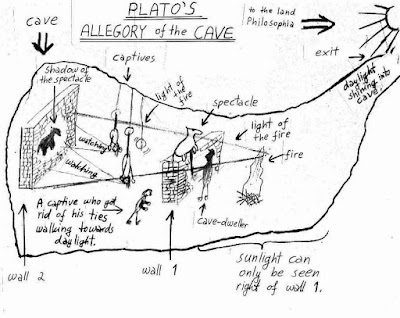 PLATO'S
ALLEGORY of the CAVE
cave
to the land
Philosophia
exit
daylight
shining into
cave.
captives
Shadow of
the spectacle
light of
the fire
spectacle
light of
the fire
fire
watching
watching
A captive who got
rid of his ties
walking towards
daylight.
cave-dweller
wall 2
wall 1
sunlight can
only be seen
right of wall 1.